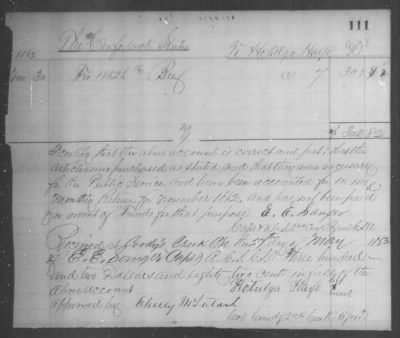 111
The Confederate States To Hotulga Harjo Dr
1862
Nov 30 For 4326 lbs Beef @ 7 302 82
$ 302.82
I certify that the above account is correct and just; that the
articles were purchased as stated, and that they were necessary
for the Public Service and have been accounted for on my
Monthly Return for November 1862, and has not been paid
for want of Funds for that purpose E. E. Sanger
Capt & A.C.S. 2nd Creek
Received at Creek this 27th day of May 1863
of E. E. Sanger Capt & A.C.S. Three hundred
and two Dollars and eighty two cents in full of the
above account Hotulga Harjo X
mark
Approved by Chilly McIntosh
Col Comdg 2nd Creek Regmt